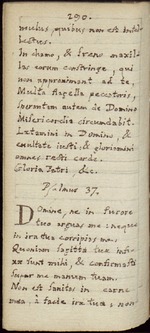 290.
mulus, quibus non est intel-
lectus.
In chamo, & freno maxil-
las eorum constringe, qui
non approximant ad te.
Multa flagella peccatoris,
sperantem autem in Domino
Misericordia circundabit.
Lætamini in Domino, &
exultate iusti: & gloriamini
omnes recti corde.
Gloria Patri, &c.
Psalmus 37.
Domine, ne in furore
tuo arguas me: neque
in ira tua corripias me.
Quoniam sagittæ tuæ infi-
xæ sunt mihi, & confirmasti
super me manum tuam.
Non est sanitas in carne
mea, à facie iræ tuæ: non